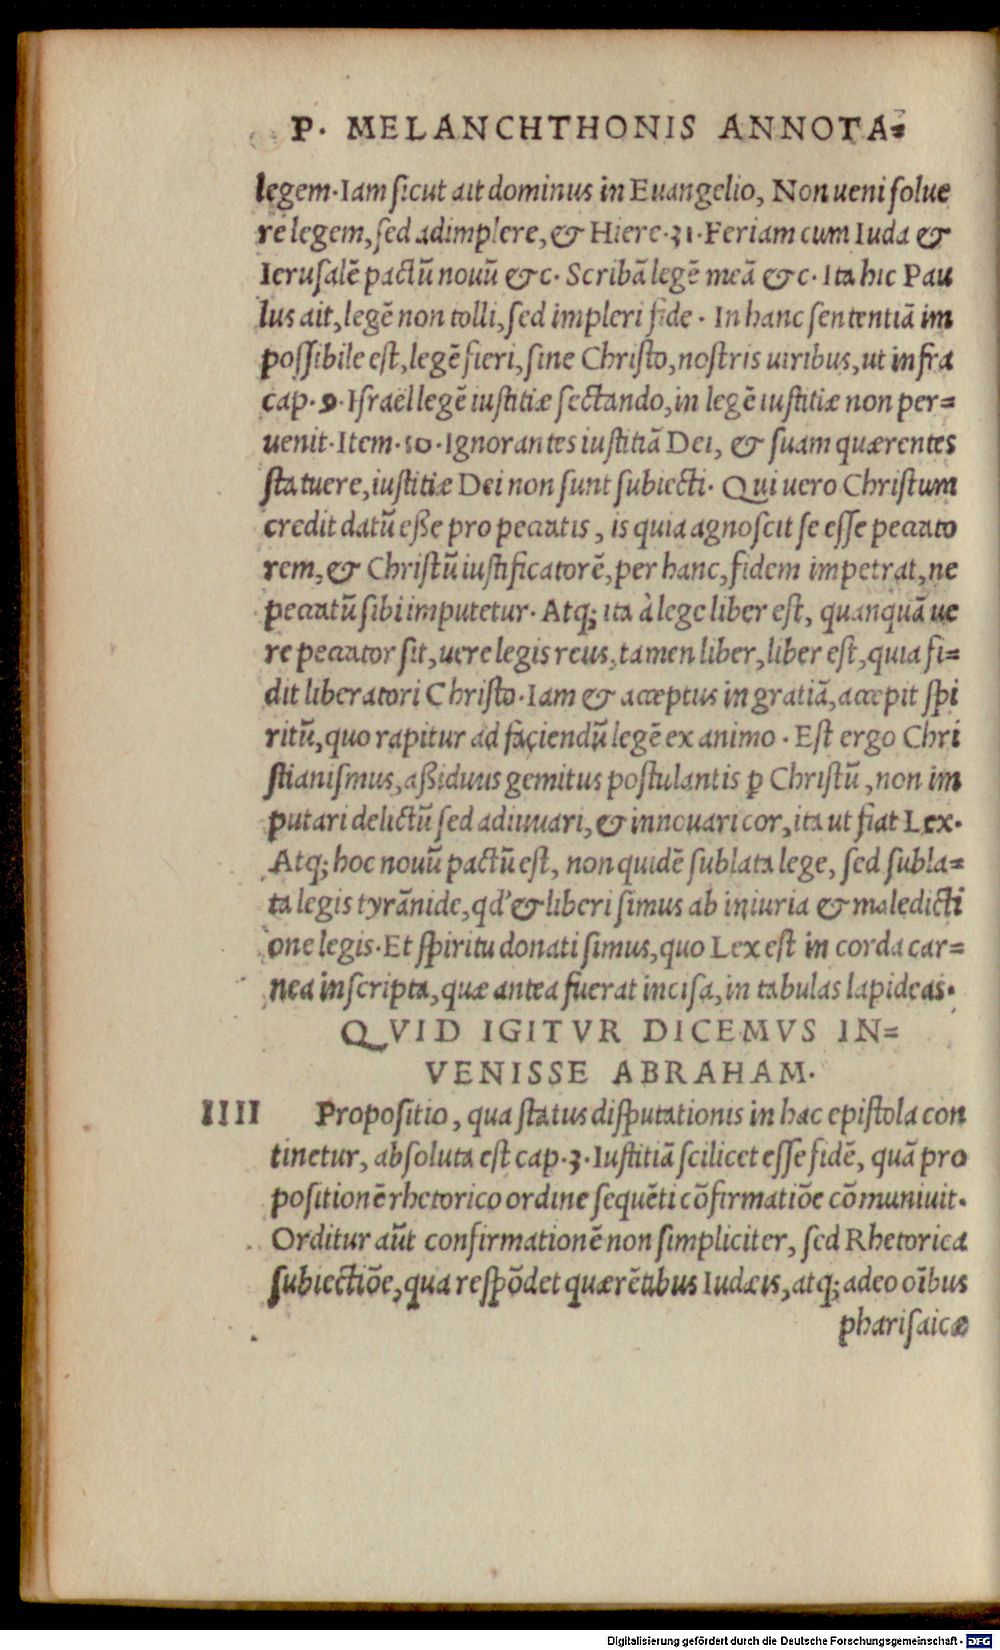 P. MELANCHTHONIS ANNOTA=
legem. Iam ſicut ait dominus in Euangelio, Non ueni ſolue
re legem, ſed adimplere, & Hiere. 31. Feriam cum Iuda &
Ieruſalē pactū nouū &c. Scribā legē meā &c. Ita hic Pau
lus ait, legē non tolli, ſed impleri fide. In hanc ſententiā im
poſſibile eſt, legē fieri, ſine Chriſto, noſtris uiribus, ut infra
cap. 9. Iſraël legē iuſtitiæ ſectando, in legē iuſtitiæ non per=
uenit. Item. 10. Ignorantes iuſtitiā Dei, & ſuam quærentes
ſtatuere, iuſtitiæ Dei non ſunt ſubiecti. Qui uero Chriſtum
credit datū eße pro peccatis, is quia agnoſcit ſe eſſe peccato
rem, & Chriſtū iuſtificatorē, per hanc, fidem impetrat, ne
peccatū ſibi imputetur. Atq; ita à lege liber eſt, quanquā ue
re peccator ſit, uere legis reus, tamen liber, liber eſt, quia fi=
dit liberatori Chriſto. Iam & acceptus in gratiā, accepit ſpi
ritū, quo rapitur ad faciendū legē ex animo. Eſt ergo Chri
ſtianiſmus, aßiduus gemitus poſtulantis ꝑ Chriſtū, non im
putari delictū ſed adiuuari, & innouari cor, ita ut fiat Lex.
Atq; hoc nouū pactū eſt, non quidē ſublata lege, ſed ſubla=
ta legis tyrānide, qd' & liberi ſimus ab iniuria & maledicti
one legis. Et ſpiritu donati ſimus, quo Lex eſt in corda car=
nea inſcripta, quæ antea fuerat inciſa, in tabulas lapideas.
QVID IGITVR DICEMVS IN=
VENISSE ABRAHAM.
IIII Propoſitio, qua ſtatus diſputationis in hac epiſtola con
tinetur, abſoluta eſt cap. 3. Iuſtitiā ſcilicet eſſe fidē, quā pro
poſitionē rhetorico ordine ſequēti cōfirmatiōe cōmuniuit.
Orditur aūt confirmationē non ſimpliciter, ſed Rhetorica
ſubiectiōe, qua reſpōdet quærētibus Iudæis, atq; adeo oībus
phariſaicæ
Digitalisierung gefördert durch die Deutsche Forschungsgemeinschaft - DFG